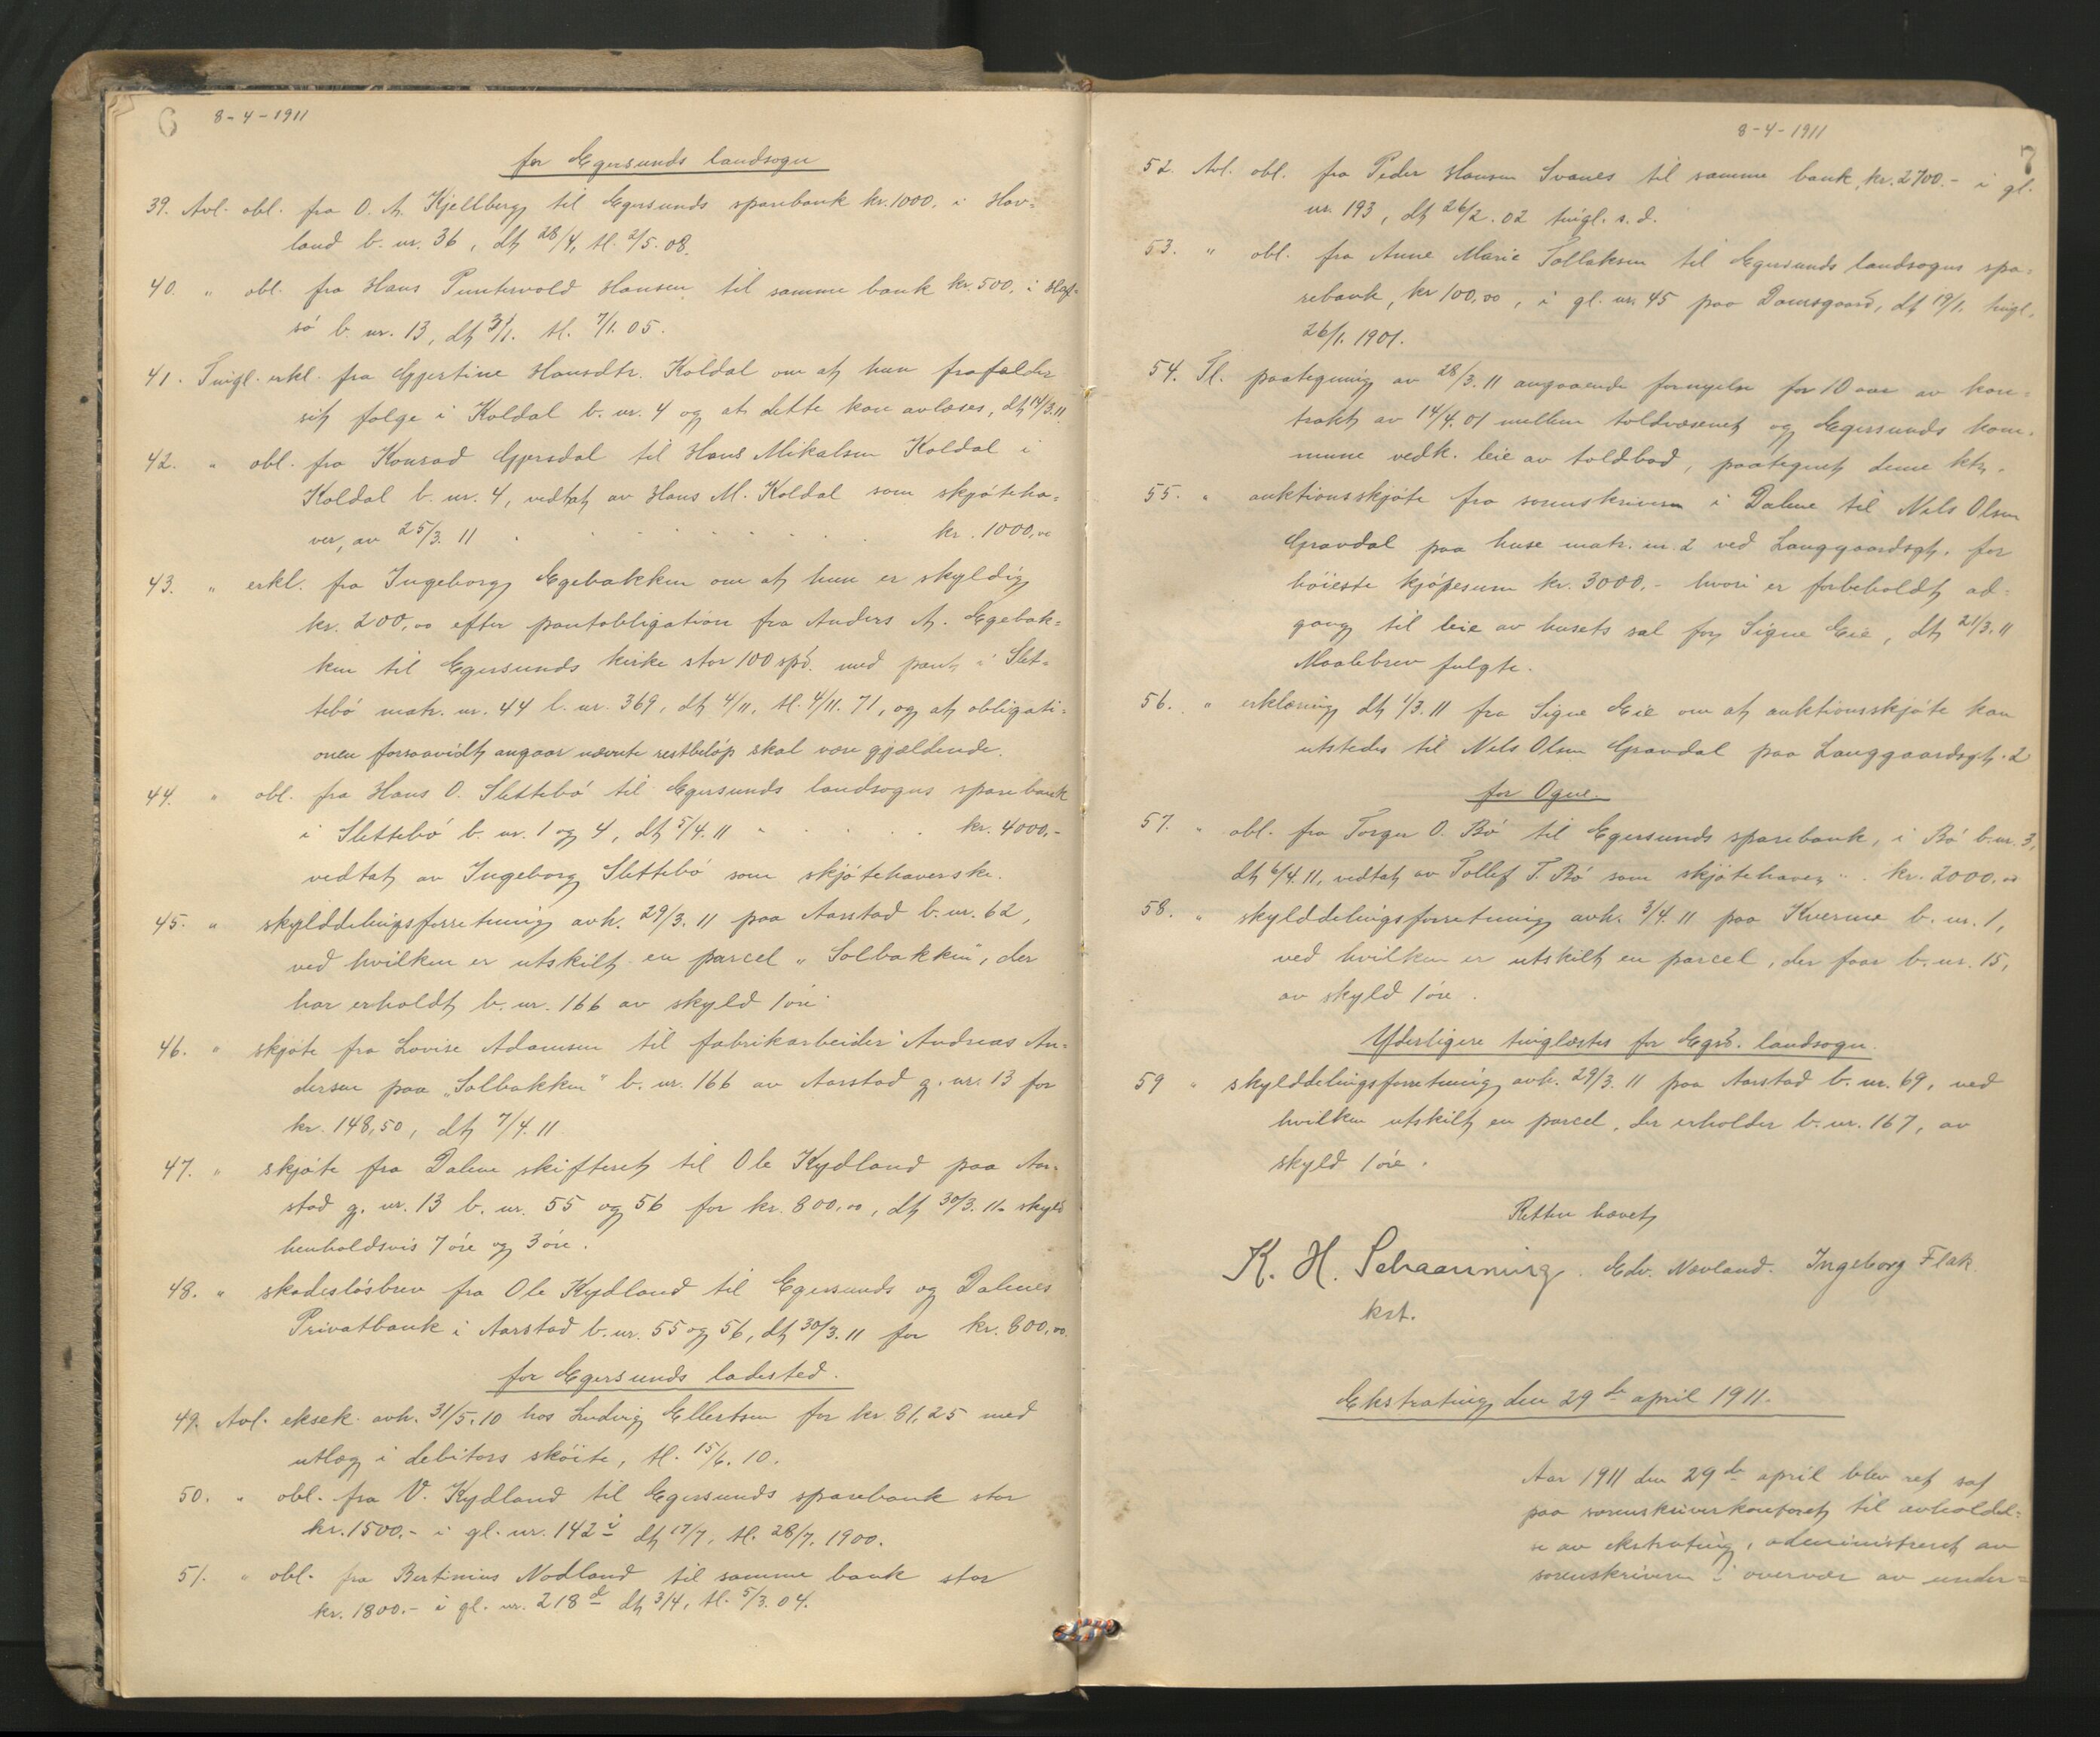 6
8-4-1911
for Egersunds landsogn
39. Avl. obl. fra O. A. Kjellberg til Egersunds sparebank kr. 1000. i Hav=
land b. nr. 36, dt 28/4, tl. 2/5. 08.
40. " obl. fra Hans Puntervold Hansen til samme bank kr. 500. i
sö b. nr. 13, dt 3/1. tl. 7/1. 05.
41. Tingl. erkl. fra Gjertine Hansdtr. Koldal om at hun frafalder
sit følge i Koldal b. nr. 4 og at dette kan avlæses, dt 14/3. 11.
42. " obl. fra Konrad Gjersdal til Hans Mikalsen Koldal i
Koldal b. nr. 4, vedtat av Hans M. Koldal som skjöteha=
ver, av 25/3. 11 . . . . . . . . kr. 1000,00
43. " erkl. fra Ingeborg Egebakken om at hun er skyldig
kr. 200,00 efter pantobligation fra Anders A. Egebak=
ken til Egersunds kirke stor 100 spd. med pant i Slet=
tebö matr. nr. 44 l. nr. 369, dt 4/11, tl. 4/11. 71, og at obligati=
onen forsaavidt angaar nævnte restbelöp skal være gjældende.
44. " obl. fra Hans O. Slettebö til Egersunds landsogns sparebank
i Slettebö b. nr. 1 og 4, dt 5/4. 11 " . . . . . kr. 4000,-
vedtat av Ingeborg Slettebö som skjötehaverske.
45. " skylddelingsforretning avh. 29/3. 11 paa Aarstad b. nr. 62,
ved hvilken er utskilt en parcel "Solbakken", der
har erholdt b. nr. 166 av skyld 1 öre.
46. " skjöte fra Lovise Adamsen til fabrikarbeider Andreas An=
dersen paa "Solbakken" b. nr. 166 av Aarstad g. nr. 13 for
kr. 148,50, dt 7/4. 11.
47. " skjöte fra Dalene skifteret til Ole Kydland paa Aar=
stad g. nr. 13 b. nr. 55 og 56 for kr. 800,00, dt 30/3. 11. skyld
henholdsvis 7 öre og 3 öre.
48. " skadeslösbrev fra Ole Kydland til Egersunds og Dalenes
Privatbank i Aarstad b. nr. 55 og 56, dt 30/3. 11 for kr. 800,00.
for Egersunds ladested.
49. Avl. eksek. avh. 31/5. 10 hos Ludvig Ellertsen for kr. 81,25 med
utlæg i debitors sköite, tl. 15/6. 10.
50. " obl. fra V. Kydland til Egersunds sparebank stor
kr. 1500.- i gl. nr. 142 i dt 17/7, tl. 28/7. 1900.
51. " obl. fra Bertinius Nodland til samme bank stor
kr. 1800.- i gl. nr. 218 d dt 3/4, tl. 5/3. 04.
8-4-1911
7
52. Avl. obl. fra Peder Hansen Svanes til samme bank, kr. 2700.- i gl.
nr. 193, dt 26/2. 02 tingl. s. d.
53. " obl. fra Anne Marie Tollaksen til Egersunds landsogns spa=
rebank, kr 100,00, i gl. nr. 45 paa Damsgaard, dt 19/1. tingl.
26/1. 1901.
54. Tl. paategning av 28/3. 11 angaaende fornyelse for 10 aar av kon=
trakt av 14/4. 01 mellem toldvæsenet og Egersunds kom=
mune vedk. leie av toldbod, paategnet denne ktr.
55. " auktionsskjöte fra sorenskriveren i Dalene til Nils Olsen
Gravdal paa huse matr. nr. 2 ved Langgaardsgt. for
höieste kjöpesum kr. 3000.- hvori er forbeholdt ad=
gang til leie av husets sal for Signe Eie, dt 21/3. 11
Maalebrev fulgte.
56. " erklæring dt 1/3. 11 fra Signe Eie om at auktionsskjöte kan
utstedes til Nils Olsen Gravdal paa Langgaardsgt. 2
for Ogne.
57. " obl. fra Torger O. Bö til Egersunds sparebank, i Bö b. nr. 3,
dt 6/4. 11, vedtat av Tollef T. Bö som skjötehaver " . kr. 2000,00
58. " skylddelingsforretning avh. 3/4. 11 paa Kverme b. nr. 1,
ved hvilken er utskilt en parcel, der faar b. nr. 15,
av skyld 1 öre.
Yderligere tinglæstes for Egsd. landsogn.
59 " skylddelingsforretning avh. 29/3. 11 paa Aarstad b. nr. 69, ved
hvilken utskilt en parcel, der erholder b. nr. 167, av
skyld 1 öre.
Retten hævet
K. H. Schaanning. Edv. Navland. Ingeborg Flak.
kst.
Ekstrating den 29de april 1911.
Aar 1911 den 29de april blev ret sat
paa sorenskriverkontoret til avholdel=
se av ekstrating, administreret av
sorenskriveren i overvær av under=